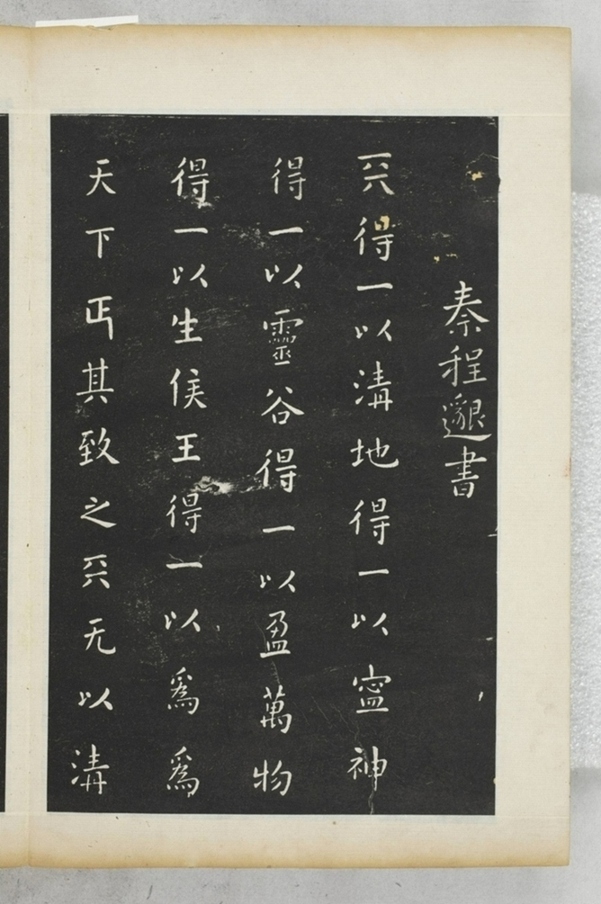 秦程邈書
天得一以清地得一以寍神
得一以靈谷得一以盈萬物
得一以生侯王得一以爲爲
天下丏其致之天无以清